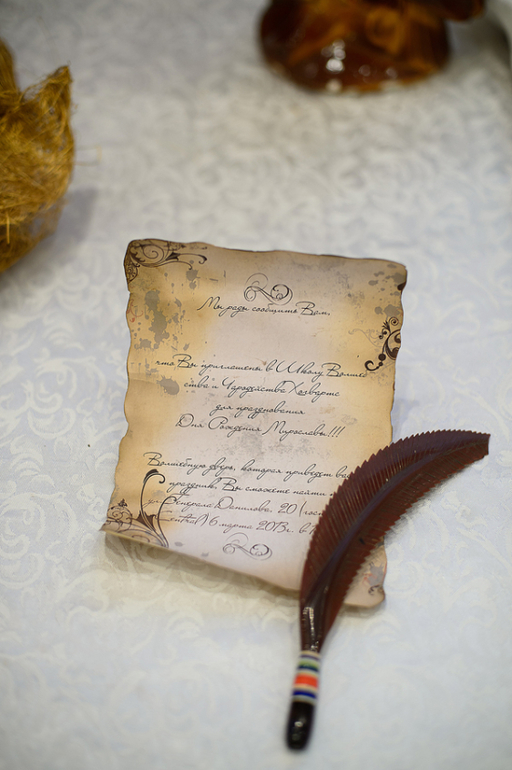 Мы рады сообщить Вам,
что Вы приглашены в Школу Волшеб
ства и Чародейства Хогвартс
для празднования
Дня Рождения Мирославы!!!
Волшебную дверь, которая приведет вас
праздник Вы сможете найти
Генерала Данилова, 20 (гост
Central) 6 марта 2013г. в